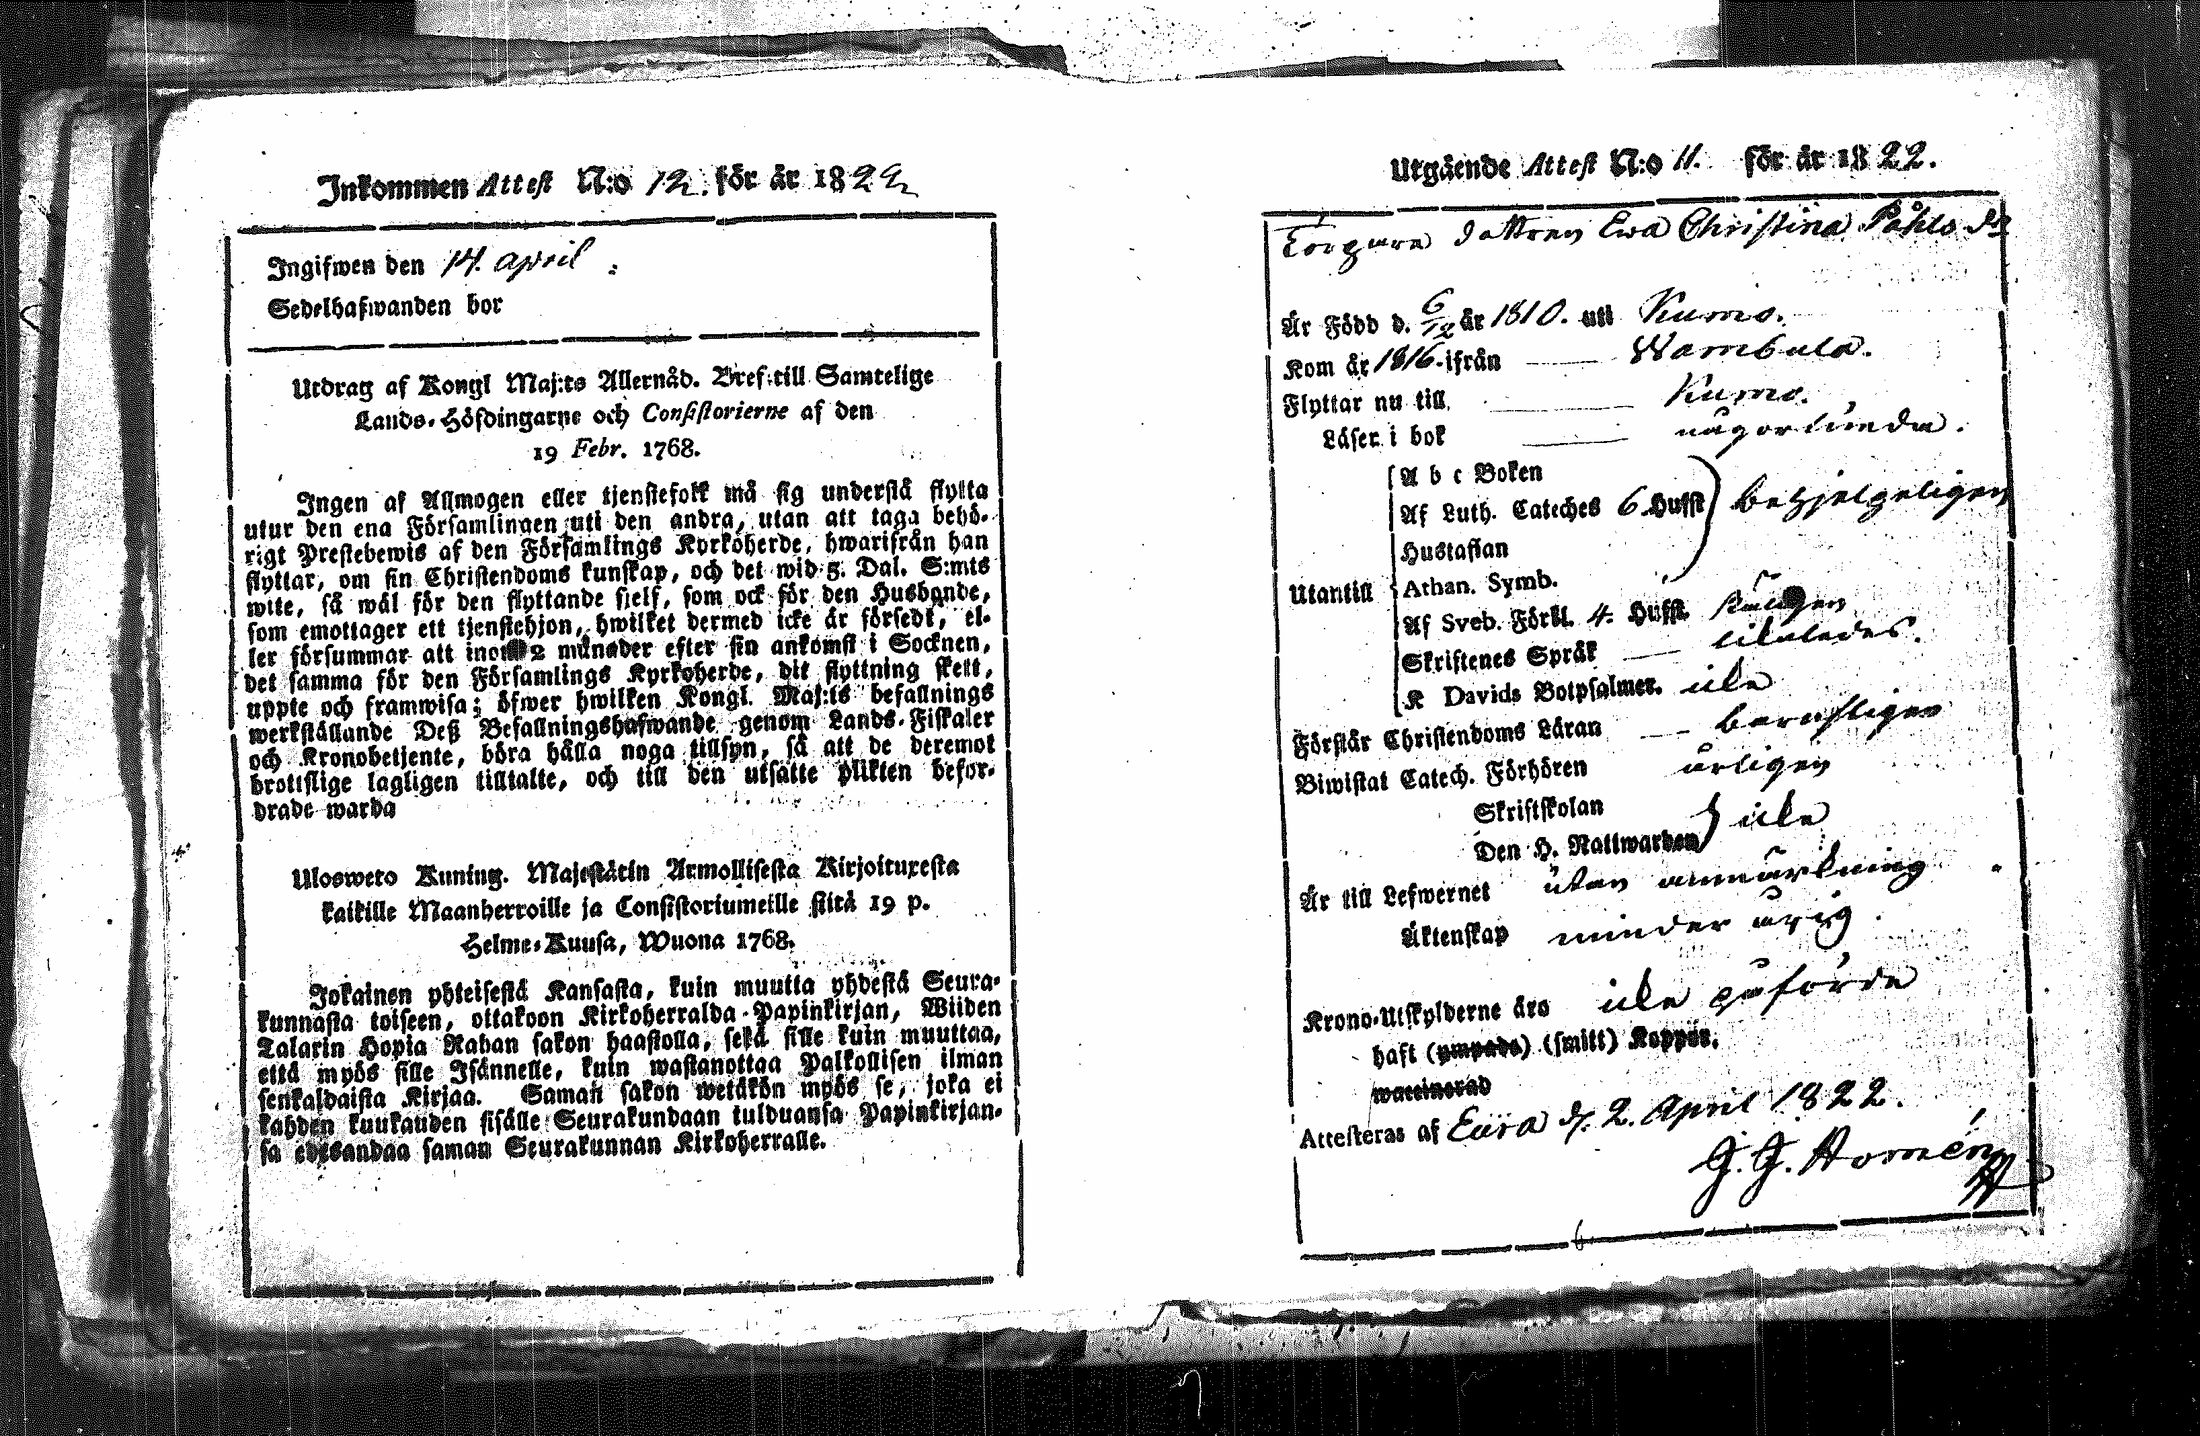 Inkommen Attest N:o 12. för år 1822
Ingifwen den 14. April
Sedelhafwanden bor
Utdrag af Kongl Maj:ts Allernåd. Bref till Samtelige
Lands-Höfdingarne och Consistorierne af den
19 Febr. 1768.
Ingen af Allmogen eller tjenstefolk må sig understå flytta
utur den ena Församlingen uti den andra, utan att taga behö-
rigt Prestebewis af den Församlings Kyrkoherde, hwarifrån han
flyttar, om sin Christendoms kunskap, och det wid 5. Dal. S:mts
wite, så wäl för den flyttande sjelf, som ock för den Husbonde,
som emottager ett tjenstehjon, hwilket dermed icke är försedt, el-
ler försummar att inom 2 månader efter sin ankomst i Socknen,
det samma för den Församlings Kyrkoherde, dit flyttning skett,
uppte och framwisa; öfwer hwilken Kongl. Maj:ts befallnings
werkställande Deß Befallningshafwande genom Lands-Fiskaler
och Kronobetjente, böra hålla noga tillsyn, så att de deremot
brottslige lagligen tilltalte, och till den utsatte plikten befor-
drade warda
Ulosweto Kuning. Majestätin Armollisesta Kirjoituxesta
kaikille Maanherroille ja Consistoriumeille siitä 19 p.
Helme-Kuusa, Wuona 1768.
Jokainen yhteisestä Kansasta, kuin muutta yhdestä Seura-
kunnasta toiseen, ottakoon Kirkoherralda Papinkirjan, Wiiden
Talarin Hopia Rahan sakon haastolla, sekä sille kuin muuttaa,
että myös sille Isännelle, kuin wastanottaa Palkollisen ilman
senkaldaista Kirjaa. Saman sakon wetäkön myös se, joka ei
kahden kuukauden sisälle Seurakundaan tulduansa Papinkirjan-
sa edesandaa saman Seurakunnan Kirkoherralle.
Utgående Attest N:o 11. för år 1822.
Torpare dottren Ewa Christina Påhls dr
Är Född d. 6/12 år 1810. uti Kumo.
Kom år 1816. ifrån Wambula.
Flyttar nu till Kumo.
Läser i bok någorlunda.
A b c Boken
Af Luth. Cateches 6 Hufst behjelpeligen
Hustaflan
Utantill Athan. Symb.
Af Sveb. Förkl. 4. Hufst.
Skriftenes Språk likaledes.
K Davids Botpsalmer. icke
Förstår Christendoms Läran barnsligen
Biwistat Catech. Förhören årligen
Skriftskolan
Den H. Nattwarden icke
Är till Lefwernet utan anmärkning
Äktenskap minder årig.
Krono-Utskylderne äro icke påförde
haft (ympade) (smitt) Koppor.
waccinerad
Attesteras af Eura d. 2. April 1822.
G. G. Homén